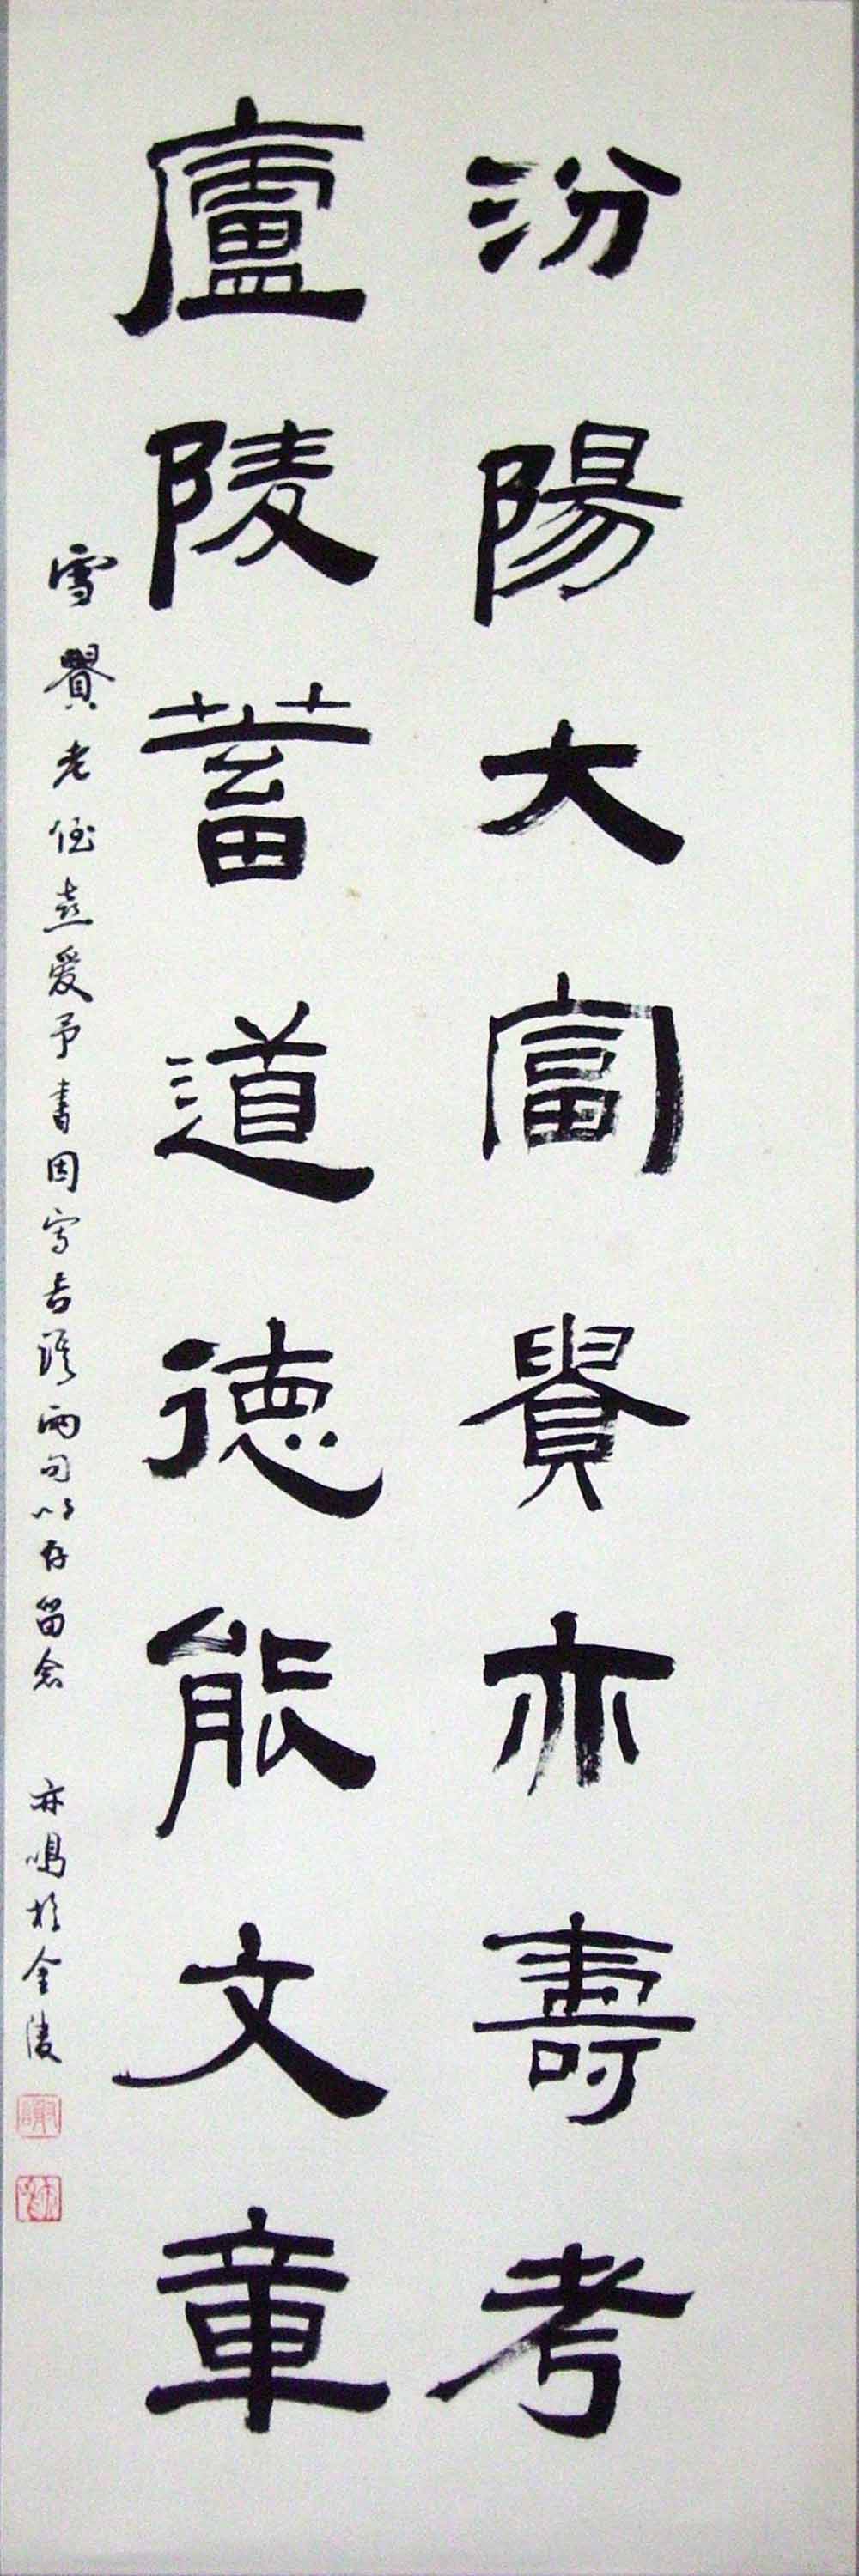 汾陽大富貴亦壽考
廬陵蓄道德能文章
雪貴老侄喜愛予書因寫古語兩句以存留念 亦鳴於金陵